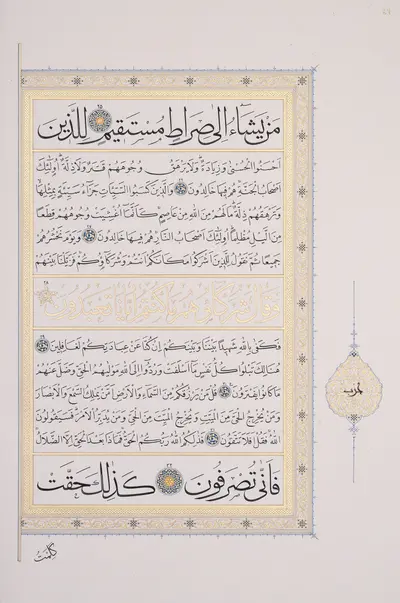 مَنْ يَشَاءُ اِلٰى صِرَاطٍ مُسْتَقِيمٍ لِلَّذِينَ
اَحْسَنُوا الْحُسْنٰى وَزِيَادَةٌ وَلَا يَرْهَقُ وُجُوهَهُمْ قَتَرٌ وَلَا ذِلَّةٌ اُولٰئِكَ
اَصْحَابُ الْجَنَّةِ هُمْ فِيهَا خَالِدُونَ وَالَّذِينَ كَسَبُوا السَّيِّئَاتِ جَزَاءُ سَيِّئَةٍ بِمِثْلِهَا
وَتَرْهَقُهُمْ ذِلَّةٌ مَا لَهُمْ مِنَ اللهِ مِنْ عَاصِمٍ كَاَنَّمَا اُغْشِيَتْ وُجُوهُهُمْ قِطَعًا
مِنَ الَّيْلِ مُظْلِمًا اُولٰئِكَ اَصْحَابُ النَّارِ هُمْ فِيهَا خَالِدُونَ وَيَوْمَ نَحْشُرُهُمْ
جَمِيعًا ثُمَّ نَقُولُ لِلَّذِينَ اَشْرَكُوا مَكَانَكُمْ اَنْتُمْ وَشُرَكَاؤُكُمْ فَزَيَّلْنَا بَيْنَهُمْ
وَقَالَ شُرَكَاؤُهُمْ مَا كُنْتُمْ اِيَّانَا تَعْبُدُونَ
فَكَفٰى بِاللهِ شَهِيدًا بَيْنَنَا وَبَيْنَكُمْ اِنْ كُنَّا عَنْ عِبَادَتِكُمْ لَغَافِلِينَ
هُنَالِكَ تَبْلُوا كُلُّ نَفْسٍ مَا اَسْلَفَتْ وَرُدُّوا اِلَى اللهِ مَوْلٰيهُمُ الْحَقِّ وَضَلَّ عَنْهُمْ
مَا كَانُوا يَفْتَرُونَ قُلْ مَنْ يَرْزُقُكُمْ مِنَ السَّمَاءِ وَالْاَرْضِ اَمَّنْ يَمْلِكُ السَّمْعَ وَالْاَبْصَارَ
وَمَنْ يُخْرِجُ الْحَيَّ مِنَ الْمَيِّتِ وَيُخْرِجُ الْمَيِّتَ مِنَ الْحَيِّ وَمَنْ يُدَبِّرُ الْاَمْرَ فَسَيَقُولُونَ
اللهُ فَقُلْ اَفَلَا تَتَّقُونَ فَذٰلِكُمُ اللهُ رَبُّكُمُ الْحَقُّ فَمَاذَا بَعْدَ الْحَقِّ اِلَّا الضَّلَالُ
فَاَنّٰى تُصْرَفُونَ كَذٰلِكَ حَقَّتْ
كَلِمَتُ